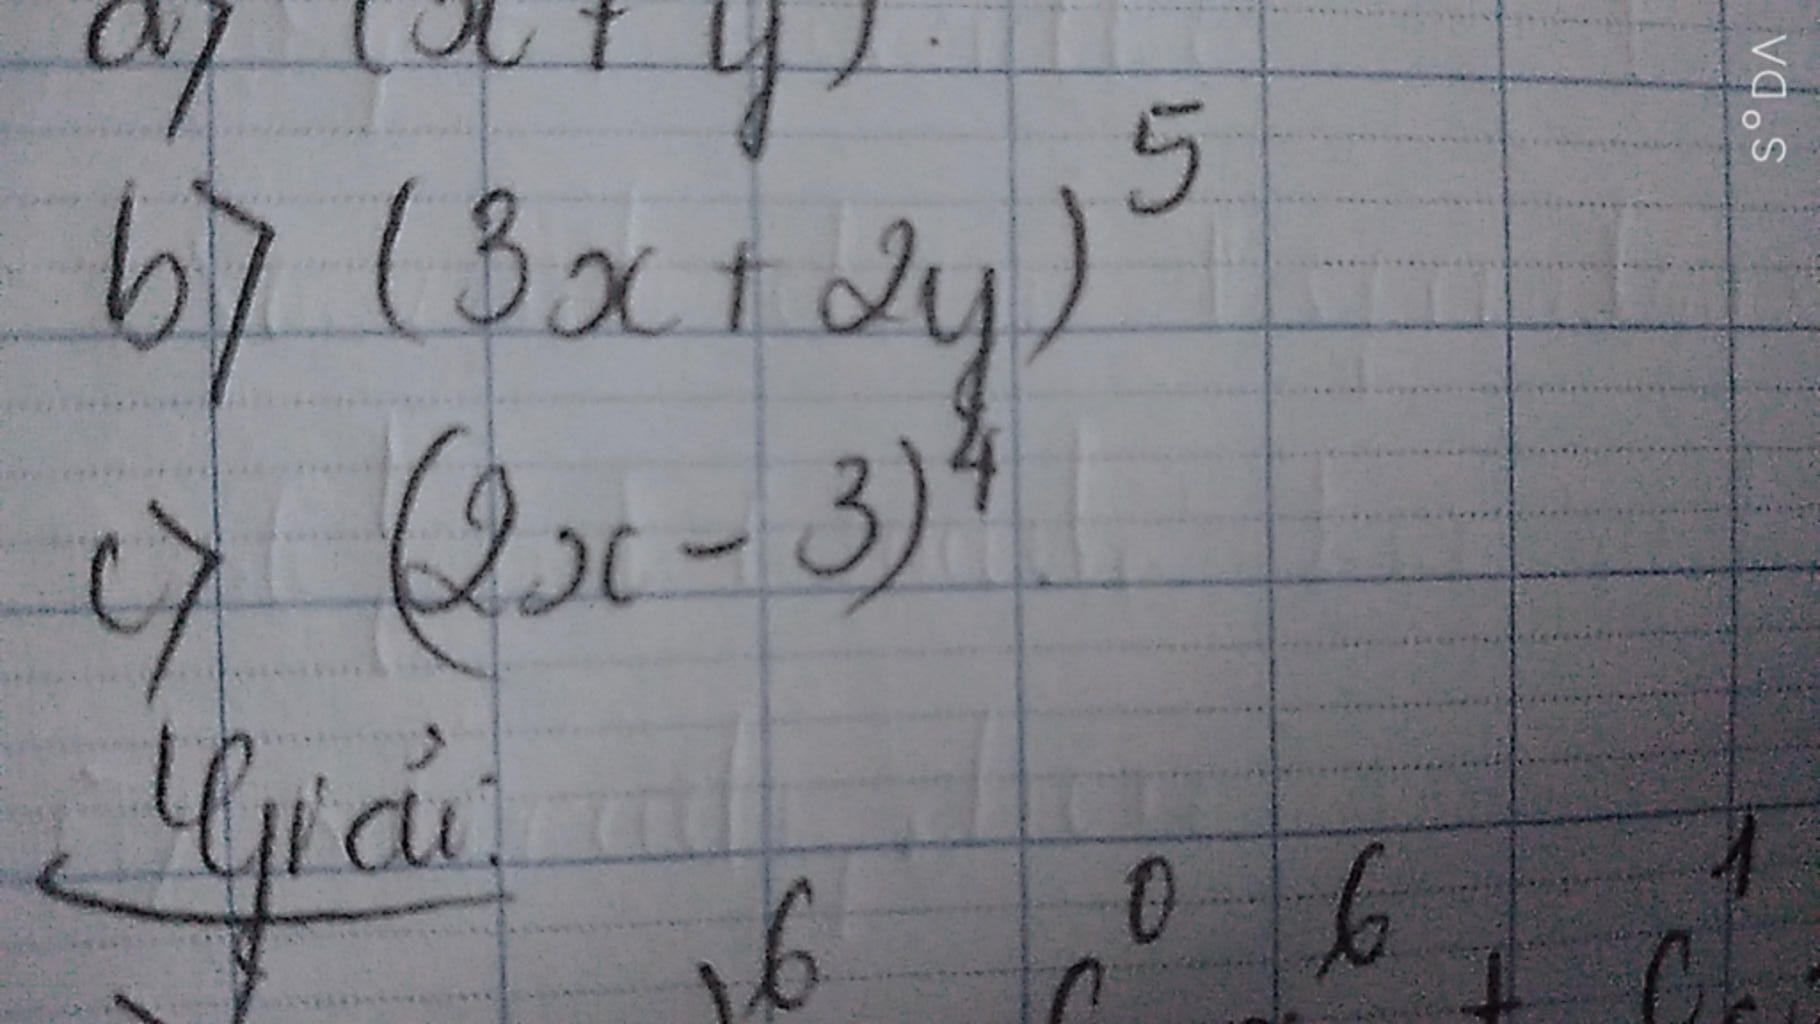 a) (x + y)
b) (3x + 2y)⁵
c) (2x - 3)⁴
Giải:
6 0 6 + 1
VDOS